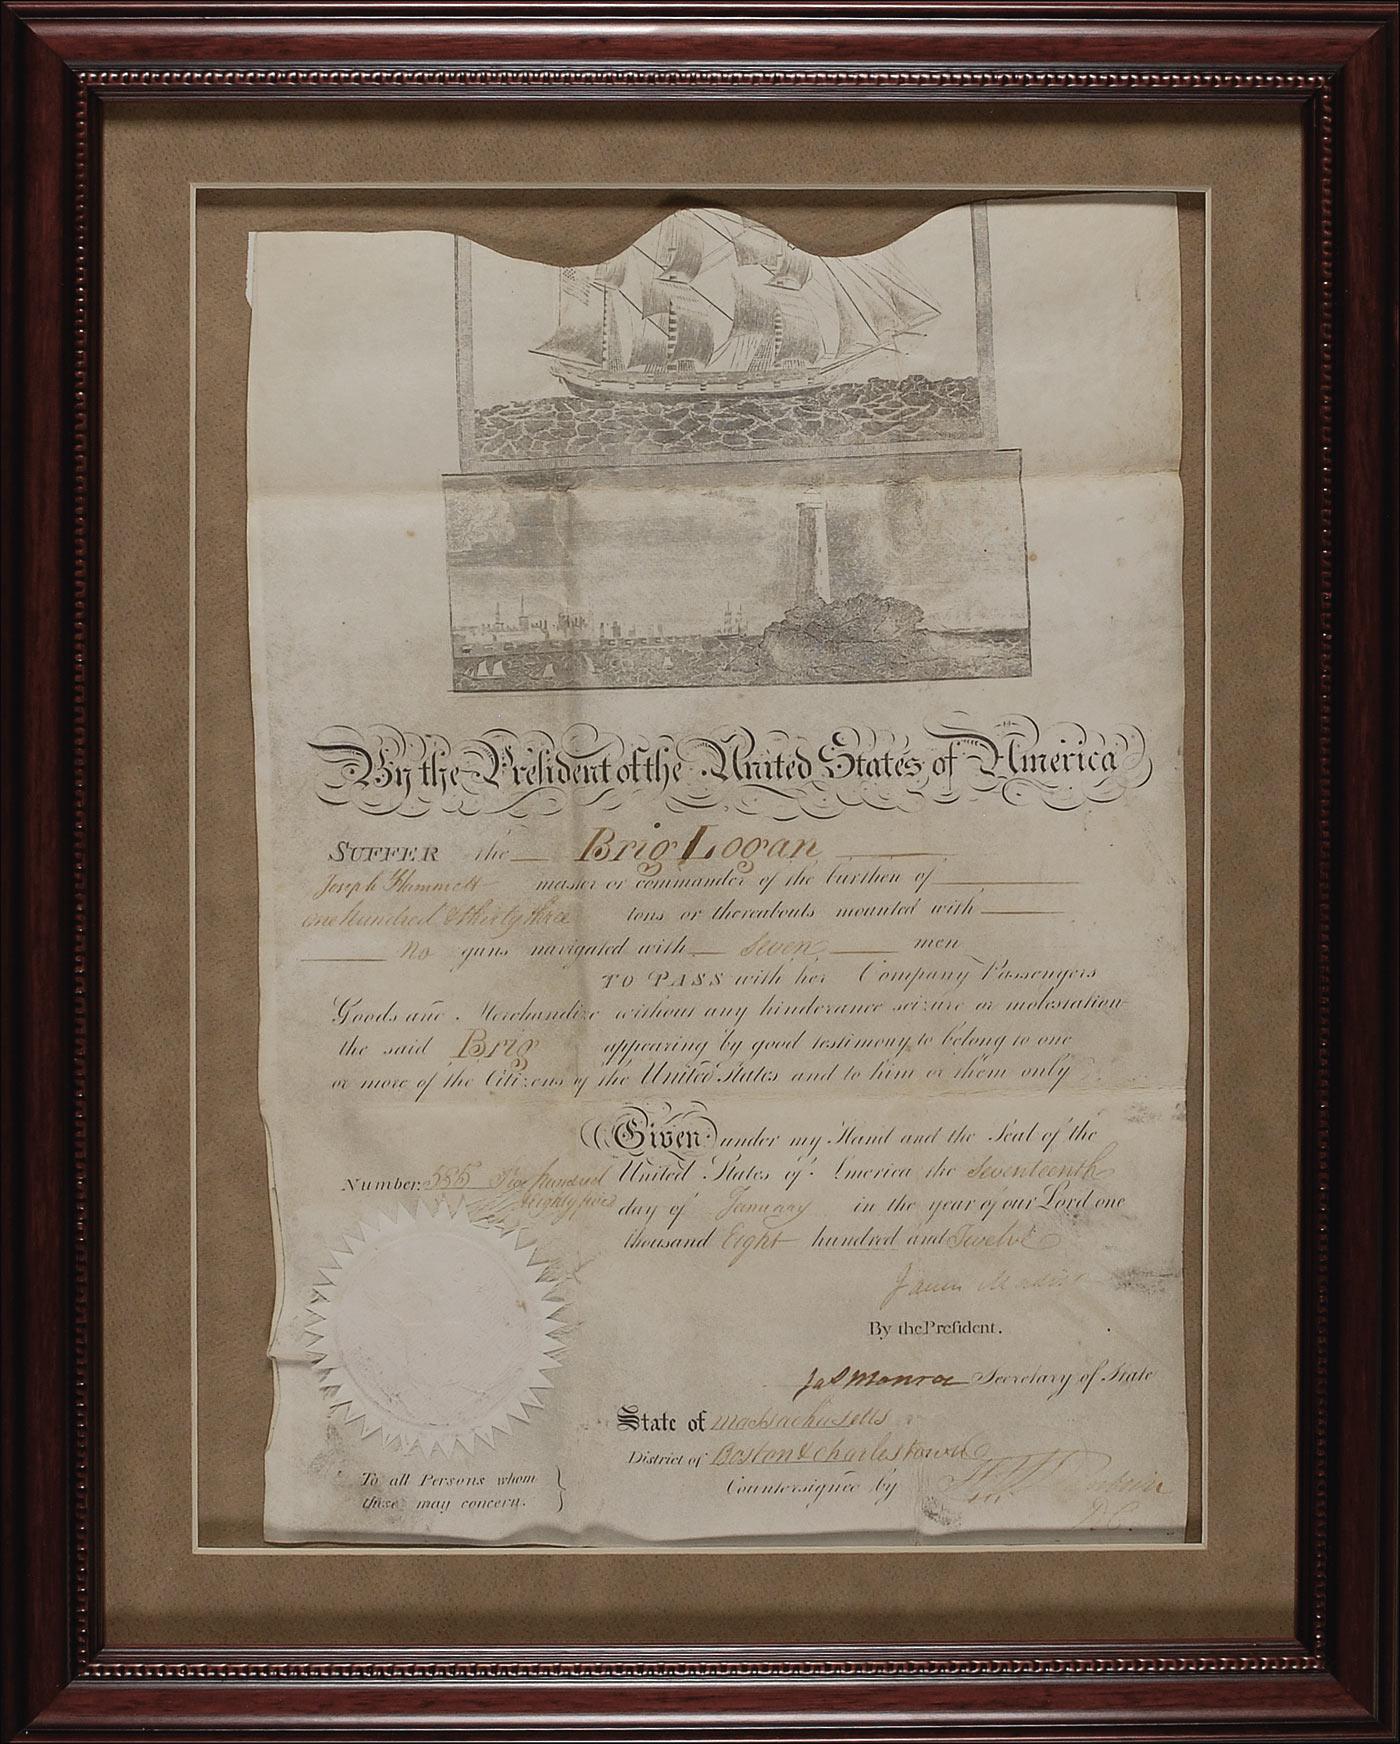 By the President of the United States of America
SUFFER the Brig Logan
Joseph Hammett master or commander of the burthen of
one hundred & thirty three tons or thereabouts mounted with
no guns navigated with seven men
TO PASS with her Company Passengers
Goods and Merchandize without any hinderance seizure or molestation
the said Brig appearing by good testimony to belong to one
or more of the Citizens of the United States and to him or them only
Given under my Hand and the Seal of the
United States of America the Seventeenth
day of January in the year of our Lord one
thousand Eight hundred and Twelve
Number 585 Five hundred
Eighty five
James Madison
By the President.
Jas Monroe Secretary of State
State of Massachusetts
District of Boston & Charlestown
Countersigned by
D.C.
To all Persons whom
these may concern.